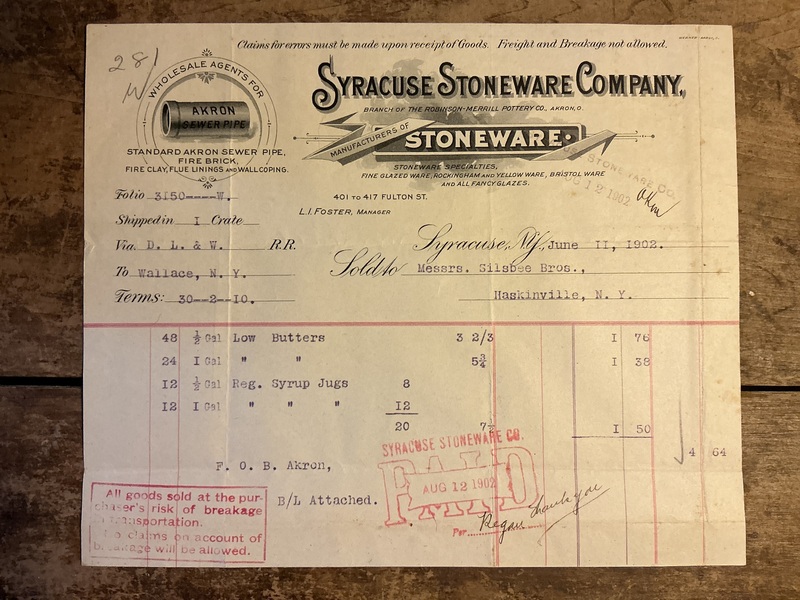 Claims for errors must be made upon receipt of Goods. Freight and Breakage not allowed.
281
W
WHOLESALE AGENTS FOR
AKRON
SEWER PIPE
STANDARD AKRON SEWER PIPE,
FIRE BRICK,
FIRE CLAY, FLUE LININGS AND WALL COPING.
SYRACUSE STONEWARE COMPANY,
BRANCH OF THE ROBINSON-MERRILL POTTERY CO., AKRON, O.
MANUFACTURERS OF
STONEWARE
STONEWARE SPECIALTIES,
FINE GLAZED WARE, ROCKINGHAM AND YELLOW WARE, BRISTOL WARE
AND ALL FANCY GLAZES.
STONEWARE CO.
12 1902
401 TO 417 FULTON ST.
L.I. FOSTER, MANAGER
Folio 3150----W.
Shipped in I Crate
Via. D. L. & W. R.R.
To Wallace, N. Y.
Terms: 30--2--10.
Syracuse, N.Y., June II, 1902.
Sold to Messrs. Silsbee Bros.,
Haskinville, N. Y.
48 ½ Gal Low Butters 3 2/3 I 76
24 I Gal " " 5¾ I 38
12 ½ Gal Reg. Syrup Jugs 8
12 I Gal " " " 12
20 7½ I 50
4 64
F. O. B. Akron,
B/L Attached.
SYRACUSE STONEWARE CO.
PAID
AUG 12 1902
Per Regan Thank you
All goods sold at the pur-
chaser's risk of breakage
in transportation.
No claims on account of
breakage will be allowed.